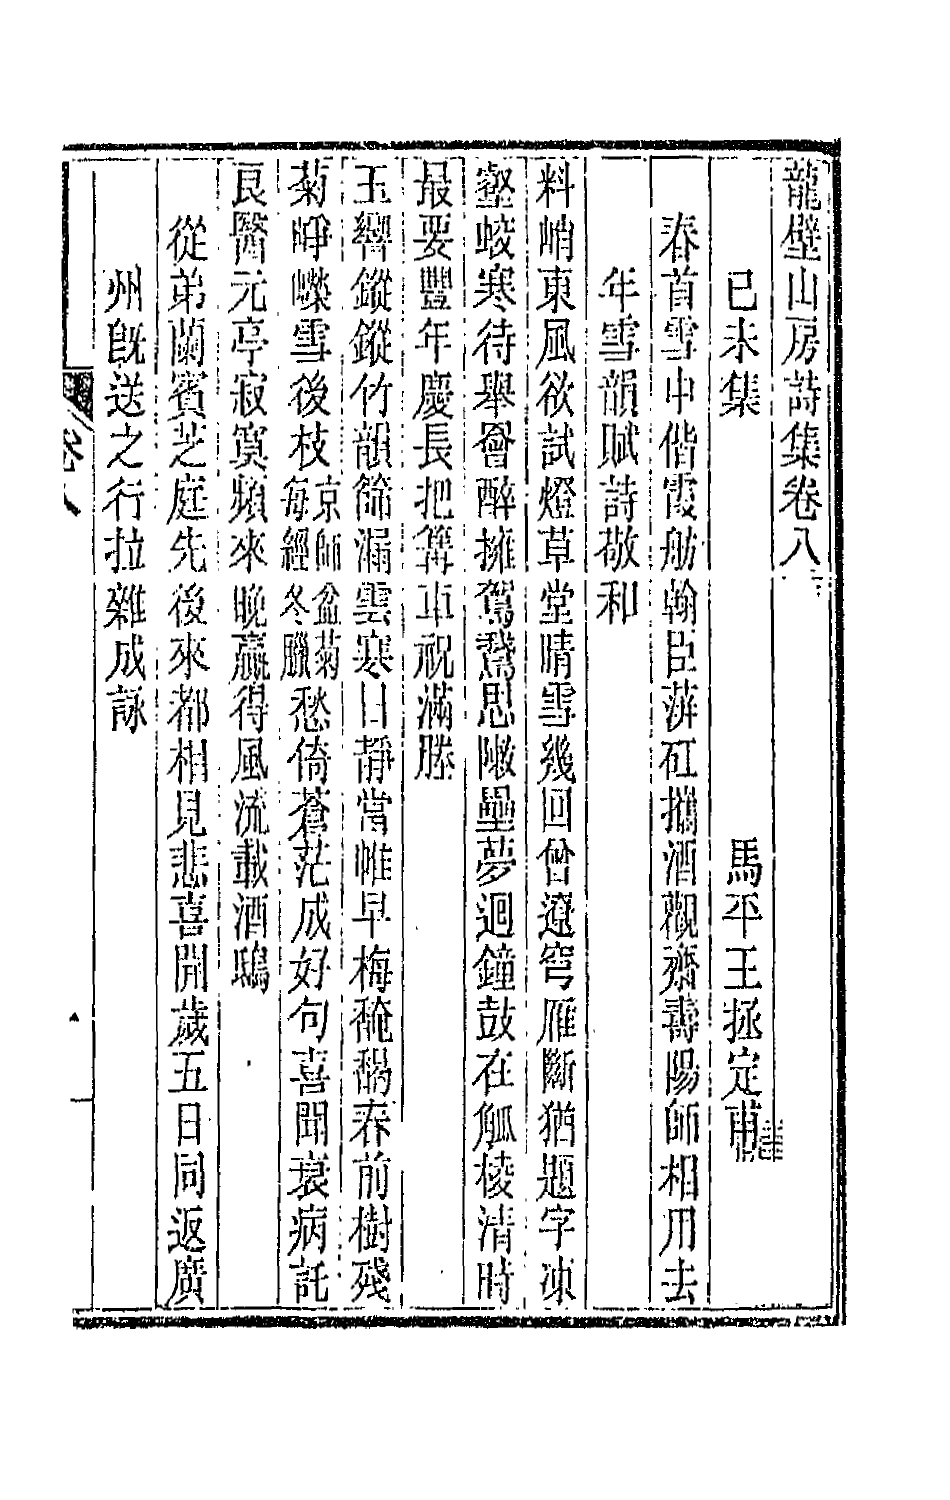 龍壁山房詩集卷八
己未集 馬平王拯定甫
春首雪中偕霞舫翰臣蓱矼攜酒觀齋壽陽師相用去
年雪韻賦詩敬和
料峭東風欲試燈草堂晴雪幾回曾遼穹雁斷猶題字凍
壑蛟寒待舉罾醉擁鴛鵞思墩壘夢迴鐘鼓在觚棱清時
最要豐年慶長把篝車祝滿塍
玉響鏦鏦竹韻篩漏雲寒日靜當帷早梅馣馤春前樹殘
菊崢嶸雪後枝京師盆菊每經冬臘愁倚蒼茫成好句喜聞衰病託
良醫元亭寂寞頻來晚贏得風流載酒鴟
從弟蘭賓芝庭先後來都相見悲喜開歲五日同返廣
州旣送之行拉雜成詠
卷八
一